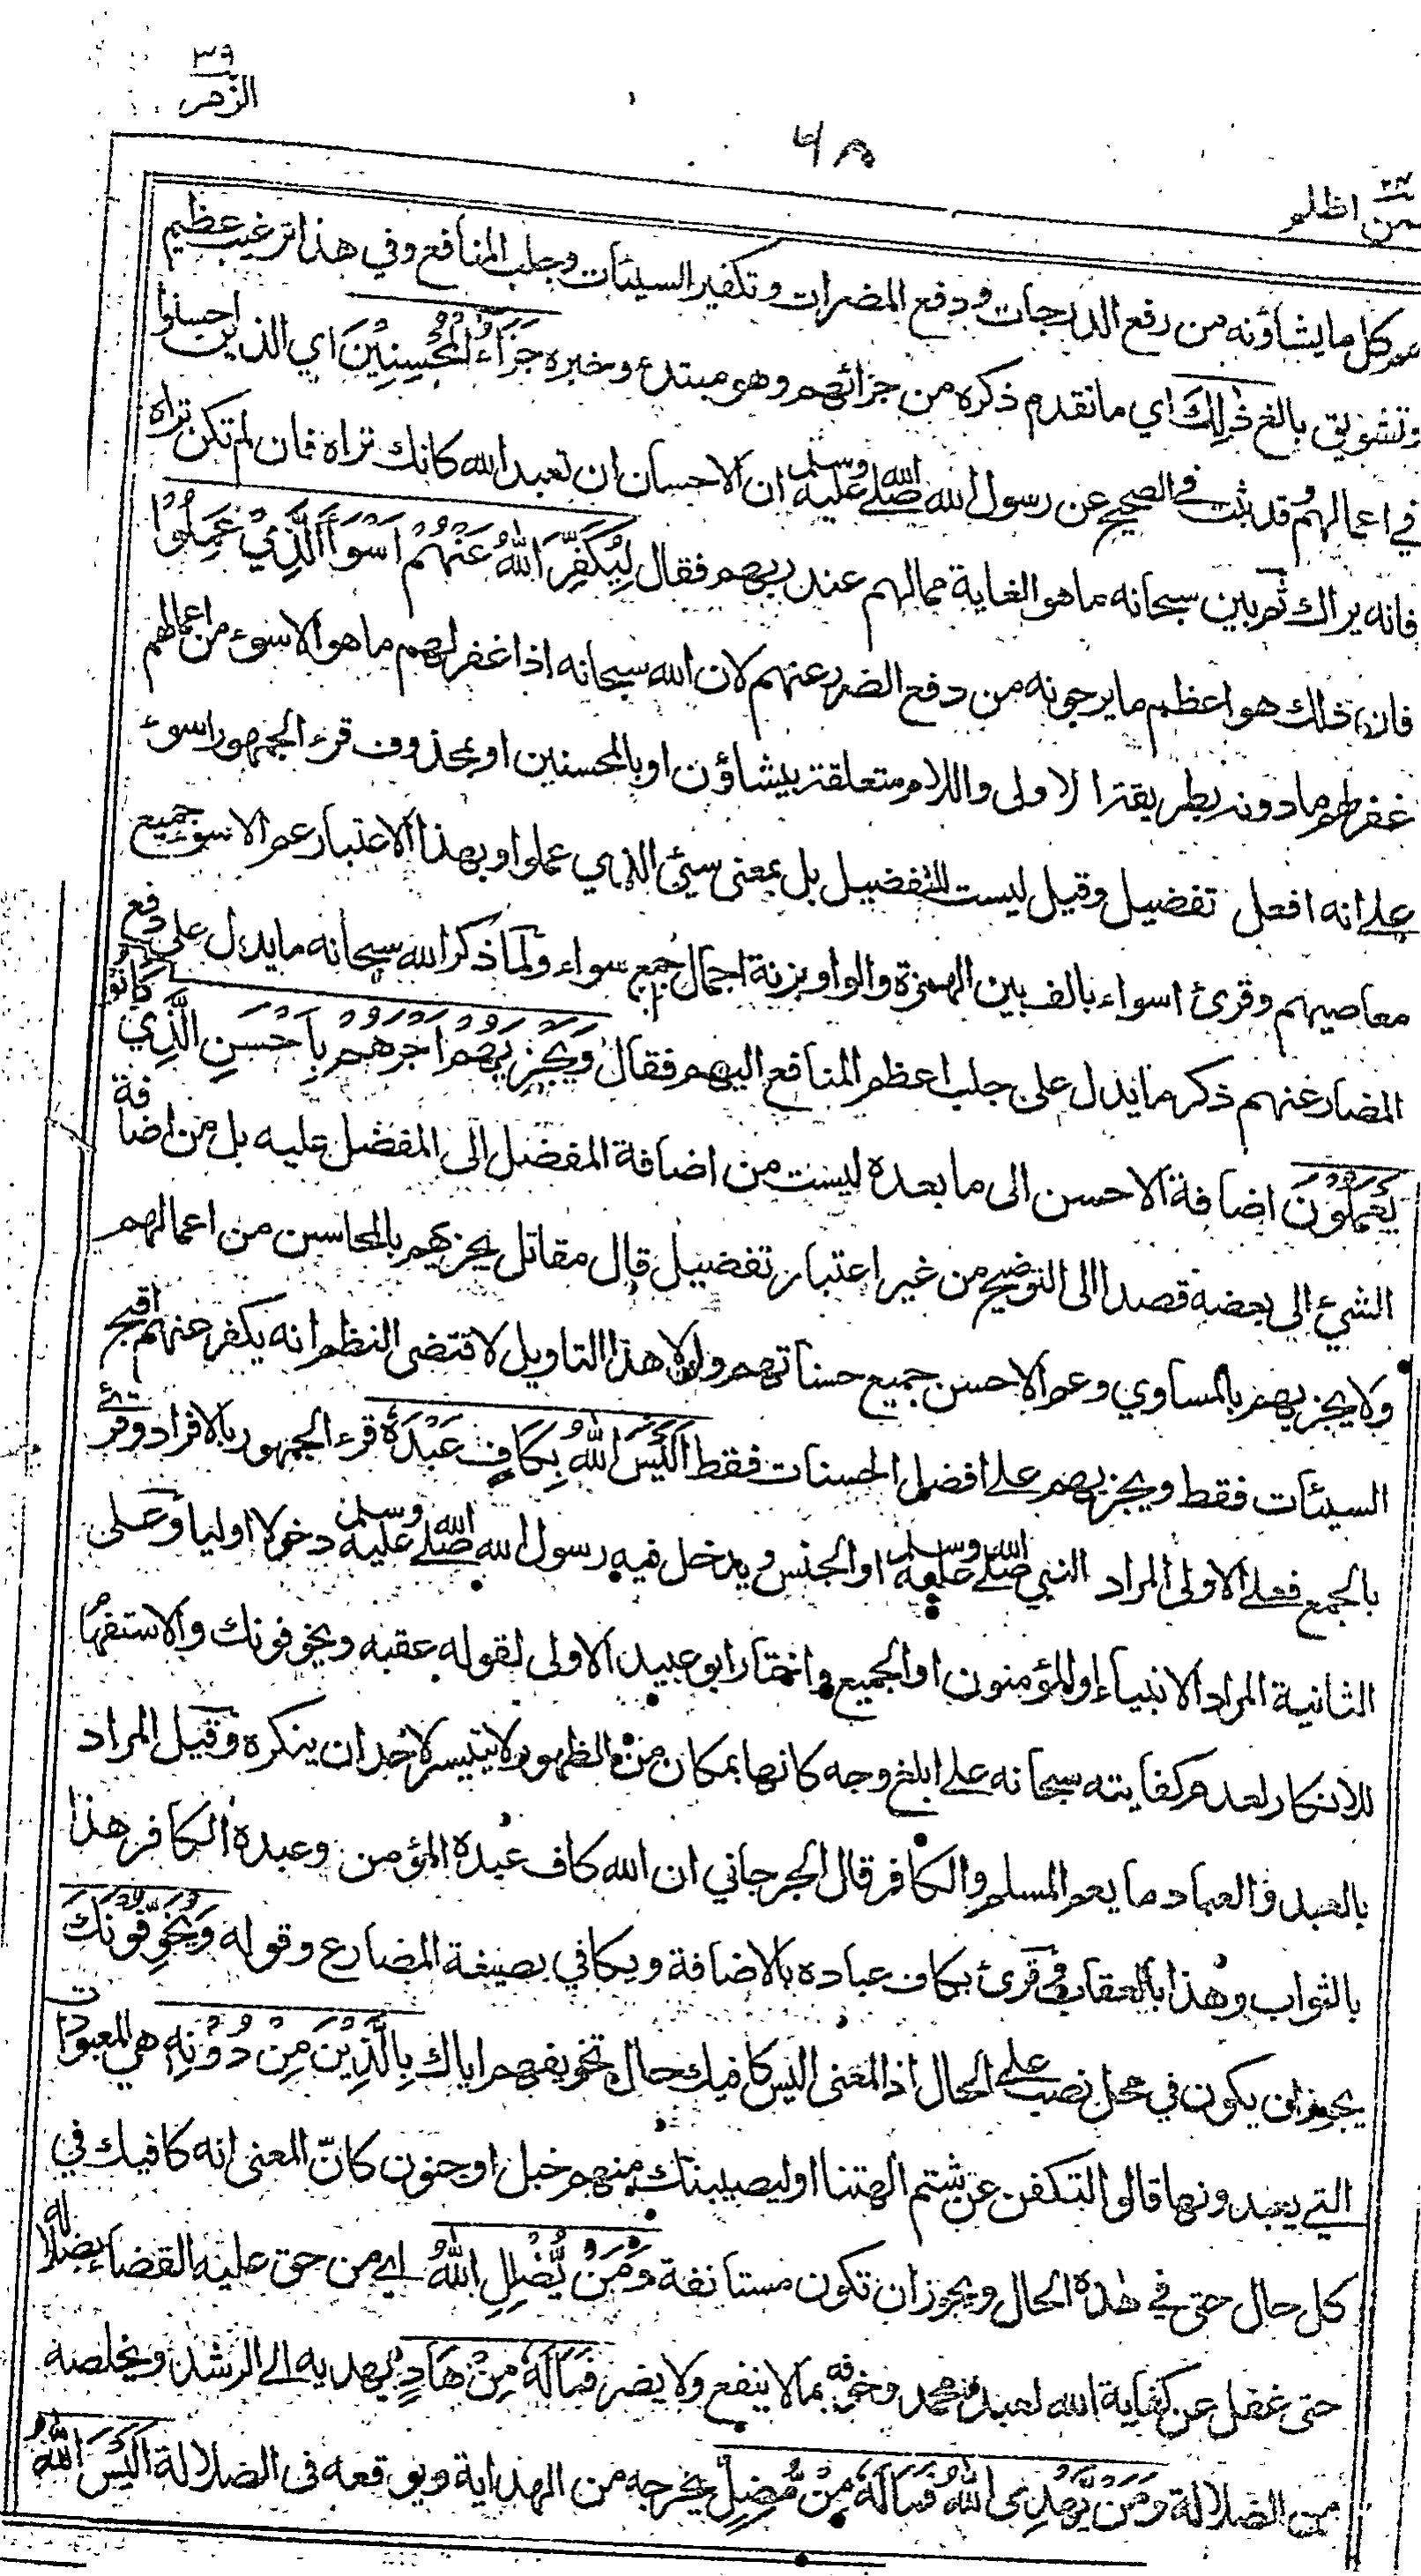 ٣٩
الزمر
٦٨
٢٤
فمن اظلم
كل ما يشاؤنه من رفع الدرجات ودفع المضرات وتكفير السيئات وجلب المنافع وفي هذا ترغيب عظيم
وتشويق بالغ ذٰلِكَ اي ما تقدم ذكره من جزائهم وهو مبتدء وخبره جَزَاءُ الْمُحْسِنِيْنَ اي الذين احسنوا
في اعمالهم وقد ثبت في الصحيح عن رسول الله صلى الله عليه وسلم ان الاحسان ان تعبد الله كانك تراه فان لم تكن تراه
فانه يراك ثم بين سبحانه ما هو الغاية مما لهم عند ربهم فقال لِيُكَفِّرَ اللّٰهُ عَنْهُمْ اَسْوَاَ الَّذِيْ عَمِلُوْا
فان ذلك هو اعظم ما يرجونه من دفع الضرر عنهم لان الله سبحانه اذا غفر لهم ما هو الاسوء من اعمالهم
غفر لهم ما دونه بطريقة الاولى واللام متعلقة بيشاؤن او بالمحسنين او بمحذوف قرء الجمهور اسوء
على انه افعل تفضيل وقيل ليست للتفضيل بل بمعنى سيئ الذي عملوا وبهذا الاعتبار عم الاسوء جميع
معاصيهم وقرئ اسواء بالف بين الهمزة والواو بزنة اجمال جمع سواء ولما ذكر الله سبحانه ما يدل على دفع
المضار عنهم ذكر ما يدل على جلب اعظم المنافع اليهم فقال وَيَجْزِيَهُمْ اَجْرَهُمْ بِاَحْسَنِ الَّذِي كَانُوْا
يَعْمَلُوْنَ اضافة الاحسن الى ما بعده ليست من اضافة المفضل الى المفضل عليه بل من اضافة
الشيئ الى بعضه قصدا الى التوضيح من غير اعتبار تفضيل قال مقاتل يجزيهم بالمحاسن من اعمالهم
ولا يجزيهم بالمساوي وعم الاحسن جميع حسناتهم ولولا هذا التاويل لاقتضى النظم انه يكفر عنهم اقبح
السيئات فقط ويجزيهم على افضل الحسنات فقط اَلَيْسَ اللّٰهُ بِكَافٍ عَبْدَهٗ قرء الجمهور بالافراد وقرئ
بالجمع فعلى الاولى المراد النبي صلى الله عليه وسلم او الجنس ويدخل فيه رسول الله صلى الله عليه وسلم دخولا اوليا وعلى
الثانية المراد الانبياء او المؤمنون او الجميع واختار ابو عبيد الاولى لقوله عقبه ويخوفونك والاستفهام
للانكار لعدم كفايته سبحانه على ابلغ وجه كانها بمكان من الظهور لا يتيسر لاحد ان ينكره وقيل المراد
بالعبد والعباد ما يعم المسلم والكافر قال الجرجاني ان الله كاف عبده المؤمن وعبده الكافر هذا
بالثواب وهذا بالعقاب وقرئ بكاف عباده بالاضافة ويكافي بصيغة المضارع وقوله وَيُخَوِّفُوْنَكَ
يجوز ان يكون في محل نصب على الحال اذ المعنى اليس كافيك حال تخويفهم اياك بِالَّذِيْنَ مِنْ دُوْنِهٖ هي المعبودات
التي يعبدونها قالوا لتكفن عن شتم الهتنا او ليصيبنك منهم خبل او جنون كانّ المعنى انه كافيك في
كل حال حتى في هذه الحال ويجوز ان تكون مستانفة وَمَنْ يُّضْلِلِ اللّٰهُ اي من حق عليه القضاء بضلاله
حتى غفل عن كفاية الله لعبده محمد وخوفه بما لا ينفع ولا يضر فَمَا لَهٗ مِنْ هَادٍ يهديه الى الرشد ويخلصه
من الضلالة وَمَنْ يَّهْدِى اللّٰهُ فَمَا لَهٗ مِنْ مُّضِلٍّ يخرجه من الهداية ويوقعه في الضلالة اَلَيْسَ اللّٰهُ